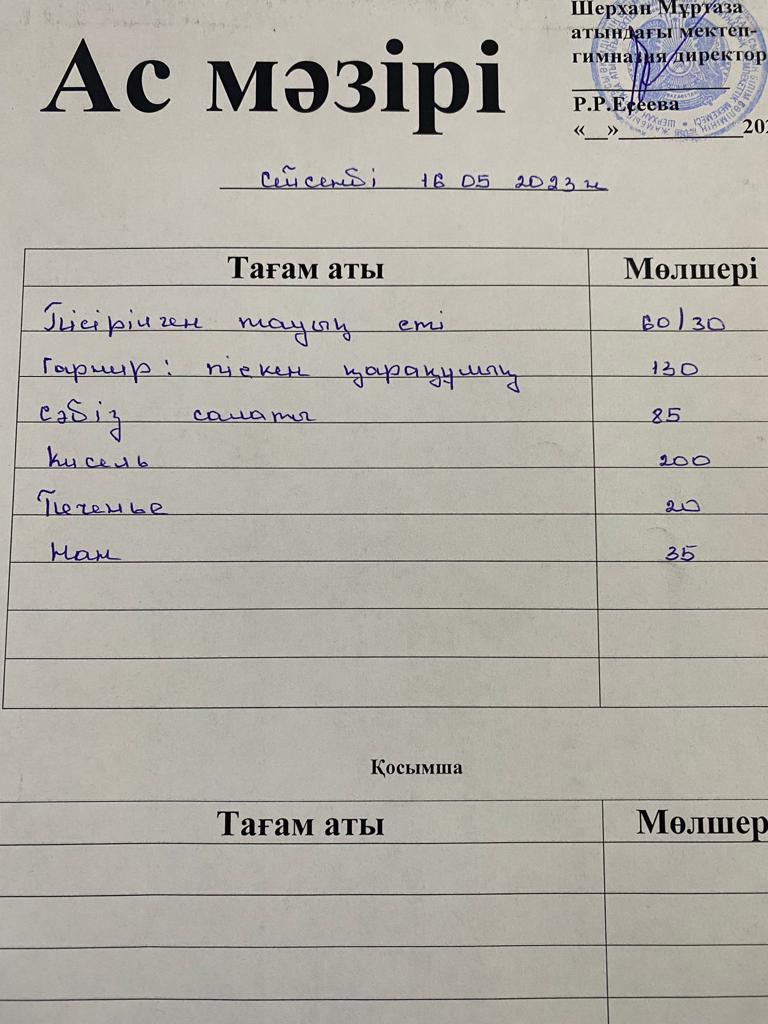 Шерхан Мұртаза
атындағы мектеп-
гимназия директор
Р.Р.Есеева
«__»____________202
Ас мәзірі
сейсенбі 16 05 2023 ж
Тағам аты Мөлшері
Пісірілген тауық еті 60/30
Гарнир: піскен қарақұмық 130
сәбіз салаты 85
Кисель 200
Печенье 20
Нан 35
Қосымша
Тағам аты Мөлшер